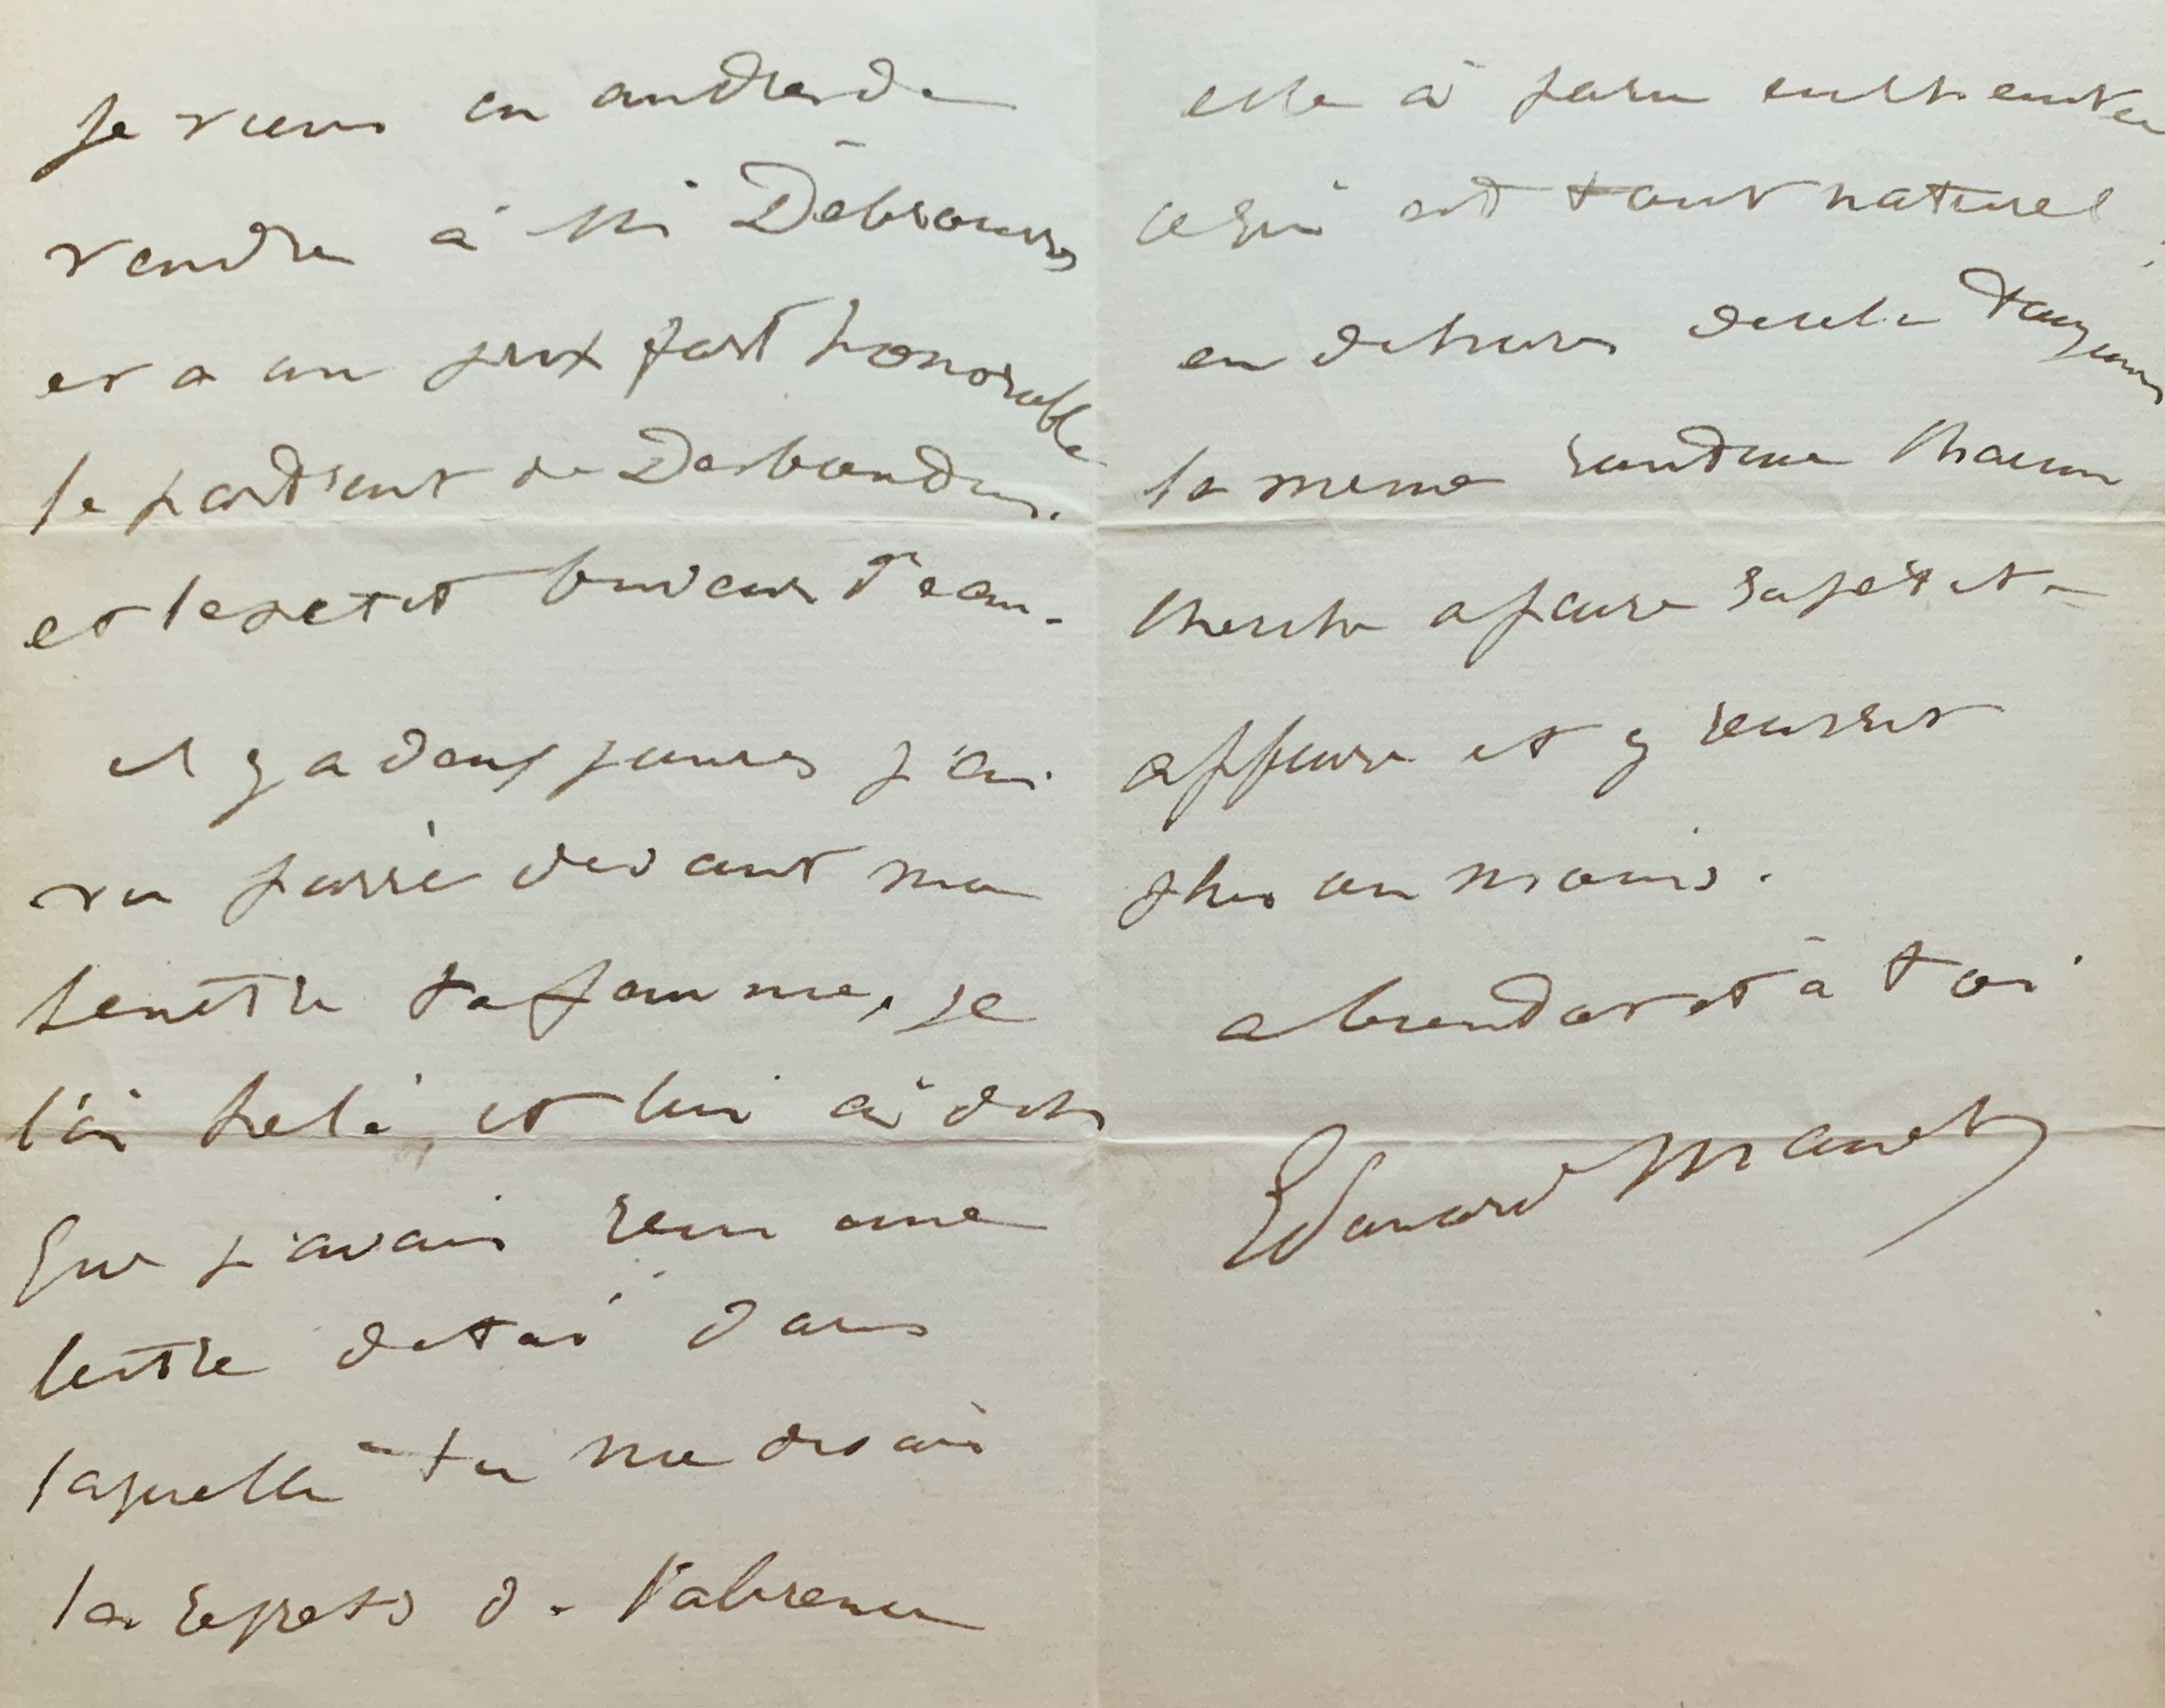 Je viens en
vendre à Mr Debrousse
et a un prix fort honorable
le portrait de Desboutin.
et le petit buveur d'eau.
il y a deux jours j'ai
vu passé devant ma
fenêtre ta femme, je
l'ai helé, et lui ai dit
que j'avais reçu une
lettre de toi dans
laquelle tu me disais
les regrets de l'absence
elle a paru enchantée
ce qui est tout naturel
en dehors de cela toujours
la meme chacun
cherche a faire sa petite
affaire et y reussit
plus ou moins.
a bientot et à toi
Edouard Manet